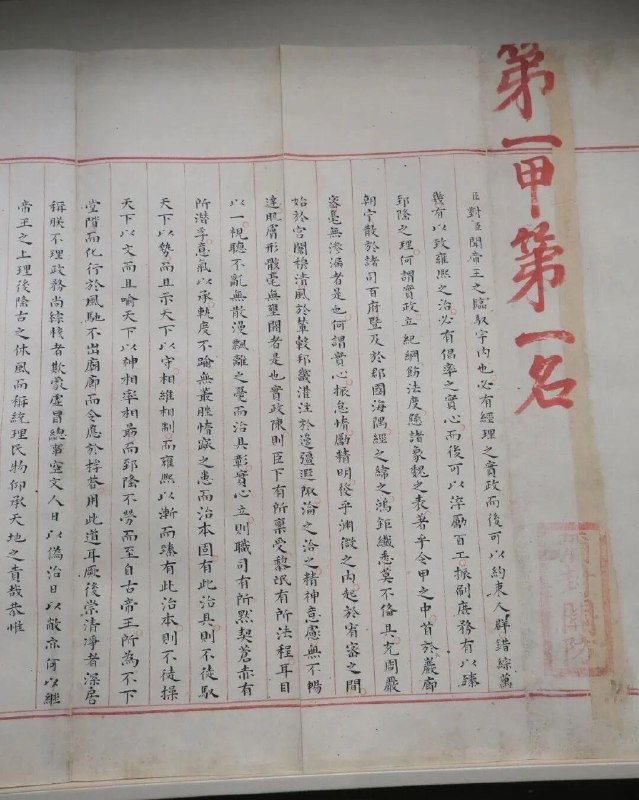 第一甲第一名
臣對臣聞帝王之臨馭宇內也必有經理之實政而後可以約束人群錯綜萬
幾有以致雍熙之治必有倡率之實心而後可以淬勵百工振刷庶務有以臻
郅隆之理何謂實政立紀綱飭法度懸諸象魏之表著乎令甲之中首於巖廊
朝宁散於諸司百府暨及於郡國海隅經之緯之鴻鉅纖悉莫不備具充周嚴
密毫無滲漏者是也何謂實心振怠惰勵精明發乎淵微之內起於宥密之間
始於宮闈穆清風於輦轂邦畿灌注於邊疆遐陬淪之洽之精神意慮無不暢
達肌膚形骸毫無壅閼者是也實政陳則臣下有所稟受黎氓有所法程耳目
以一視聽不亂無散漫飄離之憂而治具彰實心立則職司有所默契蒼赤有
所潛孚意氣以承軌度不踰無叢脞惰窳之患而治本固有此治具則不徒馭
天下以勢而且示天下以守相維相制而雍熙以漸而臻有此治本則不徒操
天下以文而且喻天下以神相率相勗而郅隆不勞而至自古帝王所為不下
堂階而化行於風馳不出廟廊而令應於桴答用此道耳厥後崇清淨者深居
稱朕不理政務尚綜核者欺蒙虛冒總事空文人日以偽治日以敝亦何以繼
帝王之上理後隆古之休風而稱統理民物仰承天地之責哉恭惟